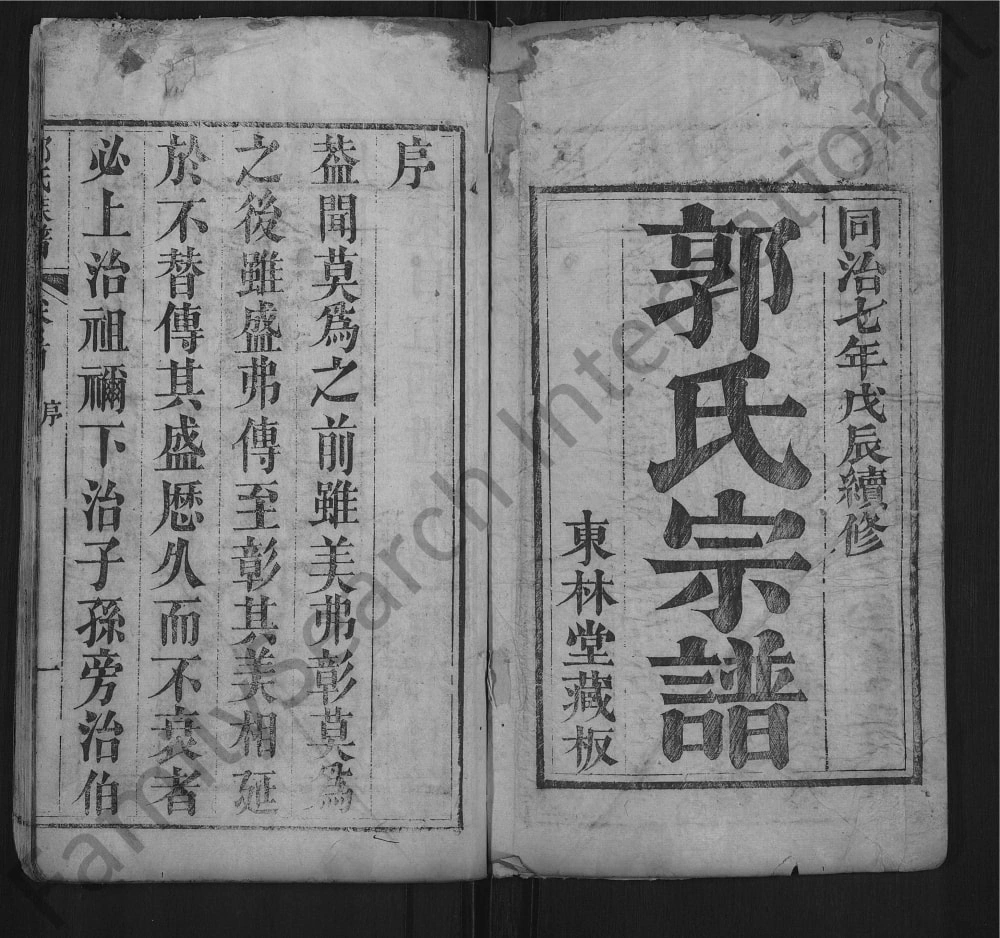 同治七年戊辰續修
郭氏宗譜
東林堂藏板
序
葢聞莫爲之前雖美弗彰莫爲
之後雖盛弗傳至彰其美相延
於不替傳其盛歷久而不衰者
必上治祖禰下治子孫旁治伯
郭氏族譜 卷首 序 一
FamilySearch International